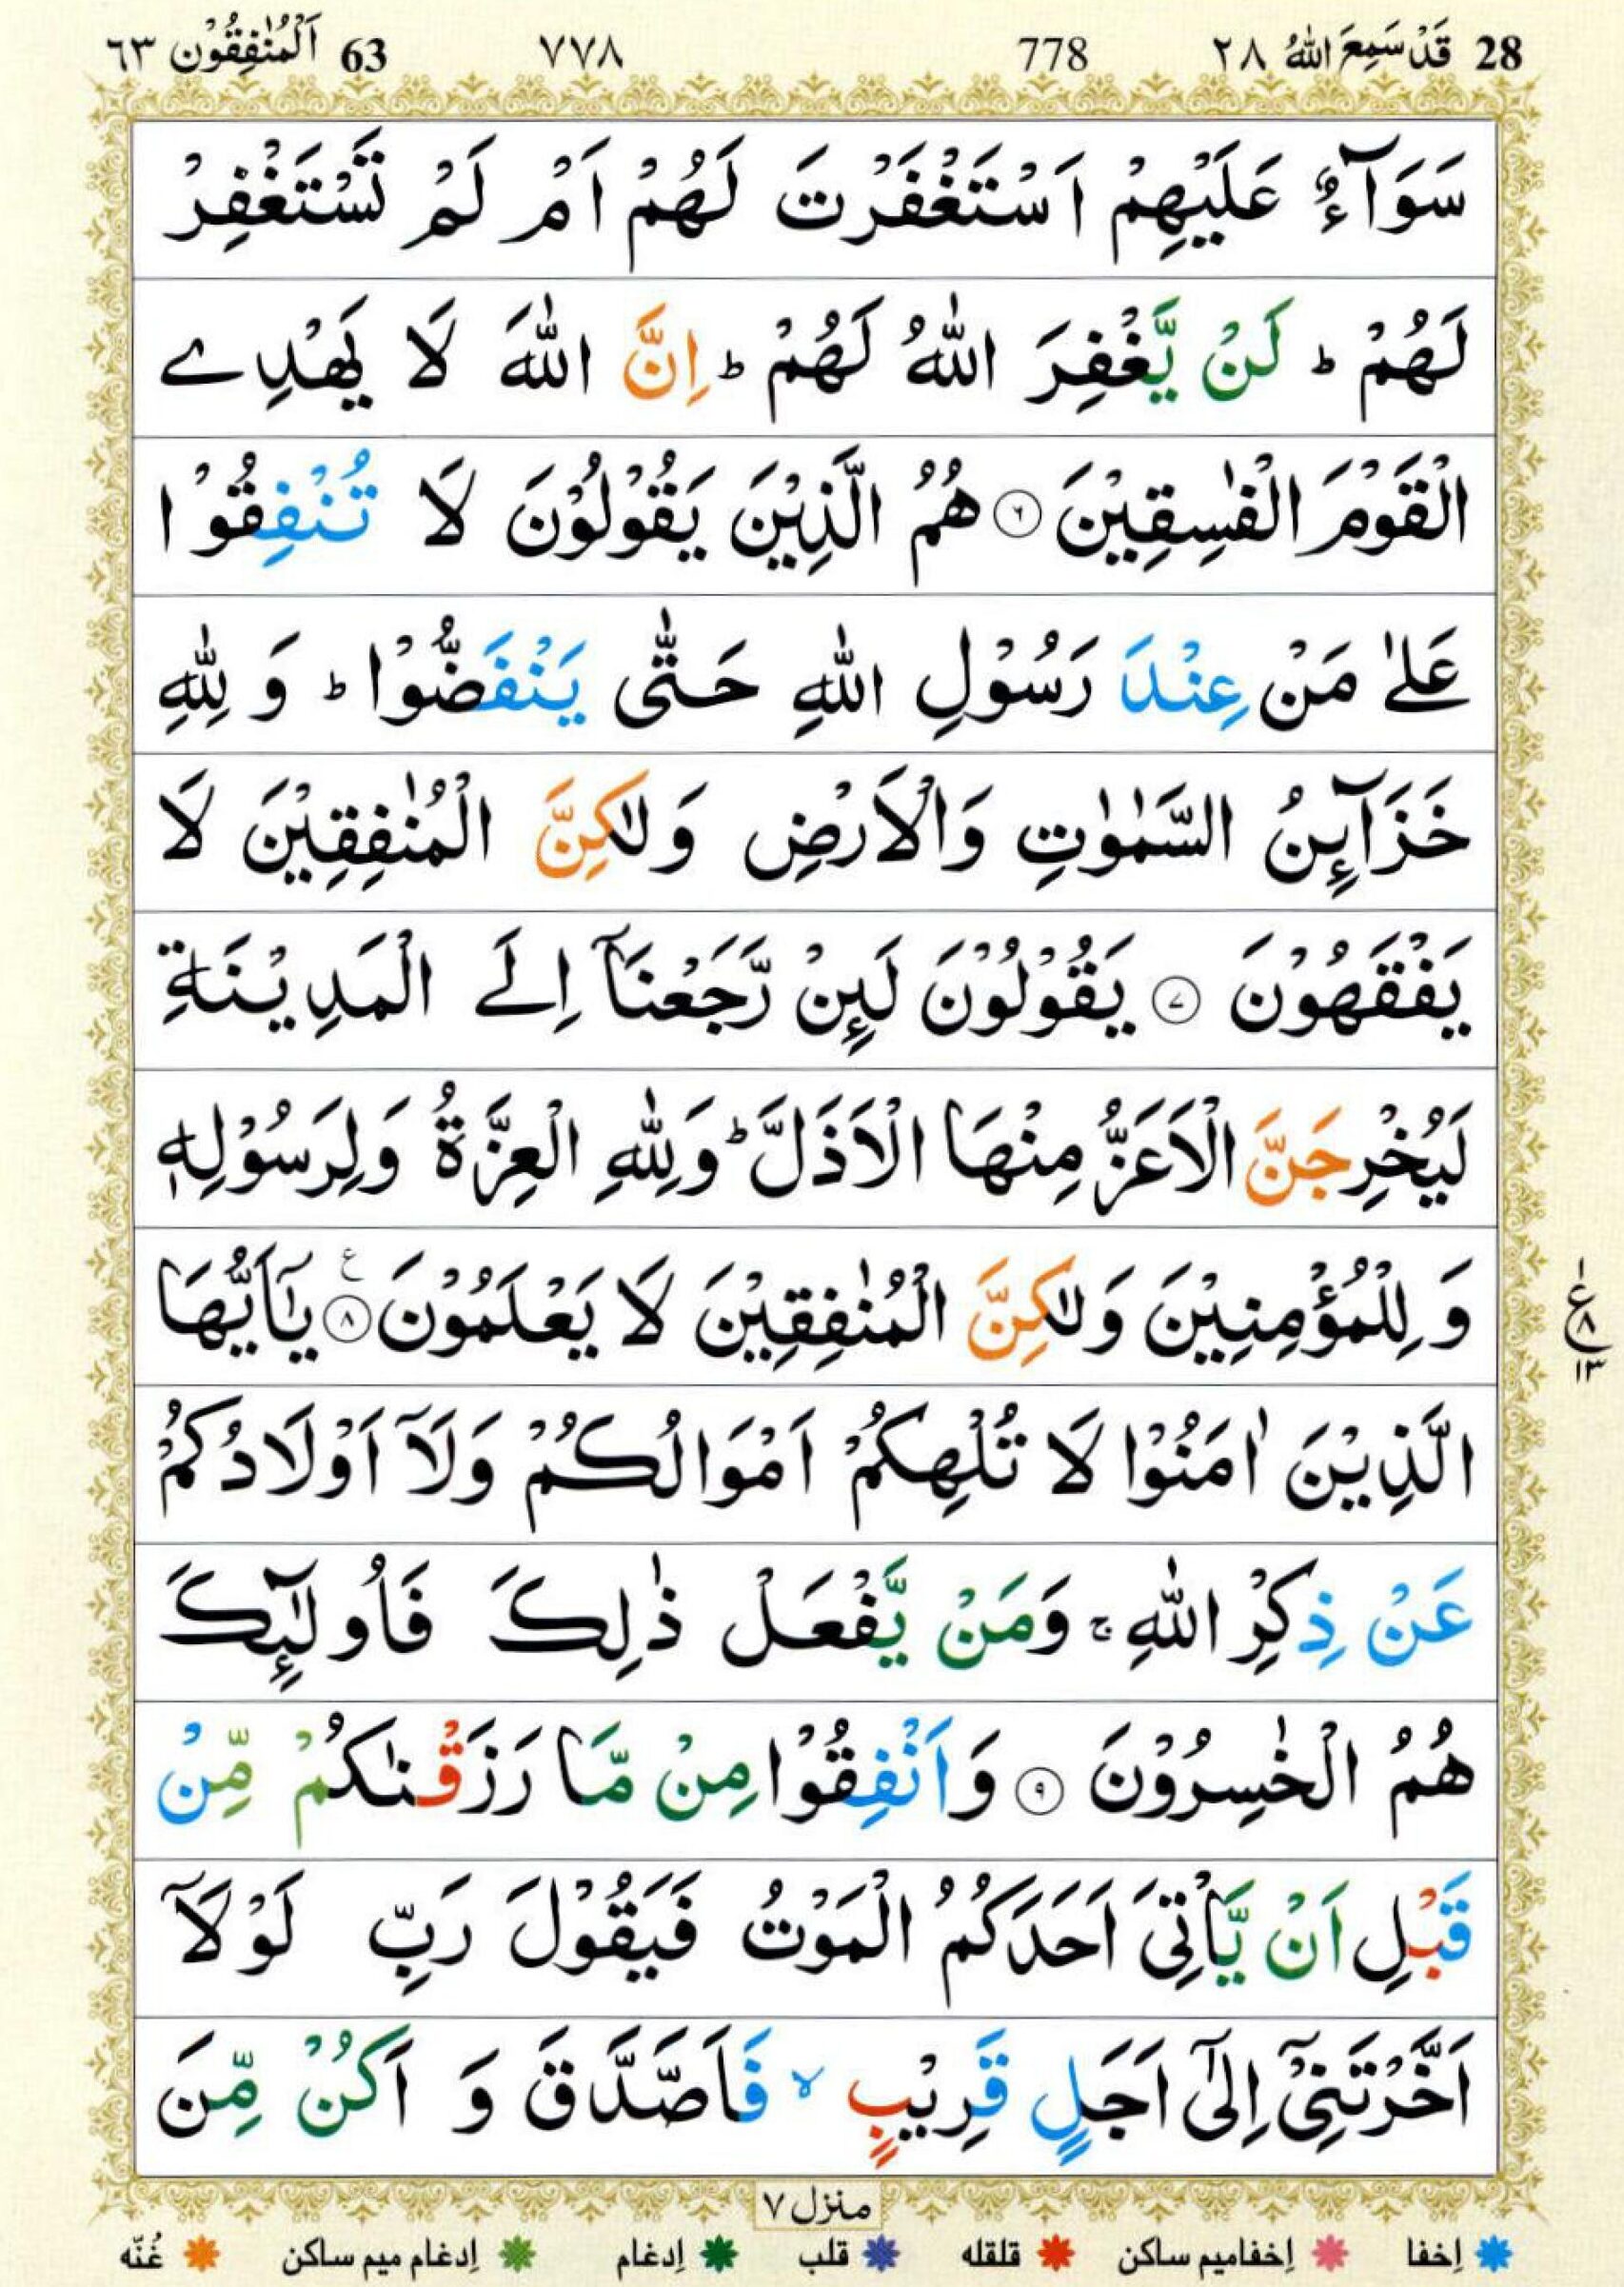 28 قَدْ سَمِعَ اللّٰهُ ٢٨ 778 ٧٧٨ 63 اَلْمُنٰفِقُوْن ٦٣
سَوَآءٌ عَلَيْهِمْ اَسْتَغْفَرْتَ لَهُمْ اَمْ لَمْ تَسْتَغْفِرْ
لَهُمْ ؕ لَنْ يَّغْفِرَ اللّٰهُ لَهُمْ ؕ اِنَّ اللّٰهَ لَا يَهْدِے
الْقَوْمَ الْفٰسِقِيْنَ ۝٦ هُمُ الَّذِيْنَ يَقُوْلُوْنَ لَا تُنْفِقُوْا
عَلٰى مَنْ عِنْدَ رَسُوْلِ اللّٰهِ حَتّٰى يَنْفَضُّوْا ؕ وَ لِلّٰهِ
خَزَآىِٕنُ السَّمٰوٰتِ وَالْاَرْضِ وَلٰكِنَّ الْمُنٰفِقِيْنَ لَا
يَفْقَهُوْنَ ۝٧ يَقُوْلُوْنَ لَىِٕنْ رَّجَعْنَاۤ اِلَے الْمَدِيْنَةِ
لَيُخْرِجَنَّ الْاَعَزُّ مِنْهَا الْاَذَلَّ ؕ وَلِلّٰهِ الْعِزَّةُ وَلِرَسُوْلِهٖ
وَ لِلْمُؤْمِنِيْنَ وَلٰكِنَّ الْمُنٰفِقِيْنَ لَا يَعْلَمُوْنَ ۝٨ ع يٰۤاَيُّهَا
ع ١ ٨ ١٣
الَّذِيْنَ اٰمَنُوْا لَا تُلْهِكُمْ اَمْوَالُكُمْ وَلَاۤ اَوْلَادُكُمْ
عَنْ ذِكْرِ اللّٰهِ ۚ وَمَنْ يَّفْعَلْ ذٰلِكَ فَاُولٰٓىِٕكَ
هُمُ الْخٰسِرُوْنَ ۝٩ وَاَنْفِقُوْا مِنْ مَّا رَزَقْنٰكُمْ مِّنْ
قَبْلِ اَنْ يَّاْتِىَ اَحَدَكُمُ الْمَوْتُ فَيَقُوْلَ رَبِّ لَوْلَاۤ
اَخَّرْتَنِىْۤ اِلٰٓى اَجَلٍ قَرِيْبٍ ۙ فَاَصَّدَّقَ وَ اَكُنْ مِّنَ
منزل ٧
اِخفا اِخفامیم ساکن قلقله قلب اِدغام اِدغام میم ساکن غُنّه